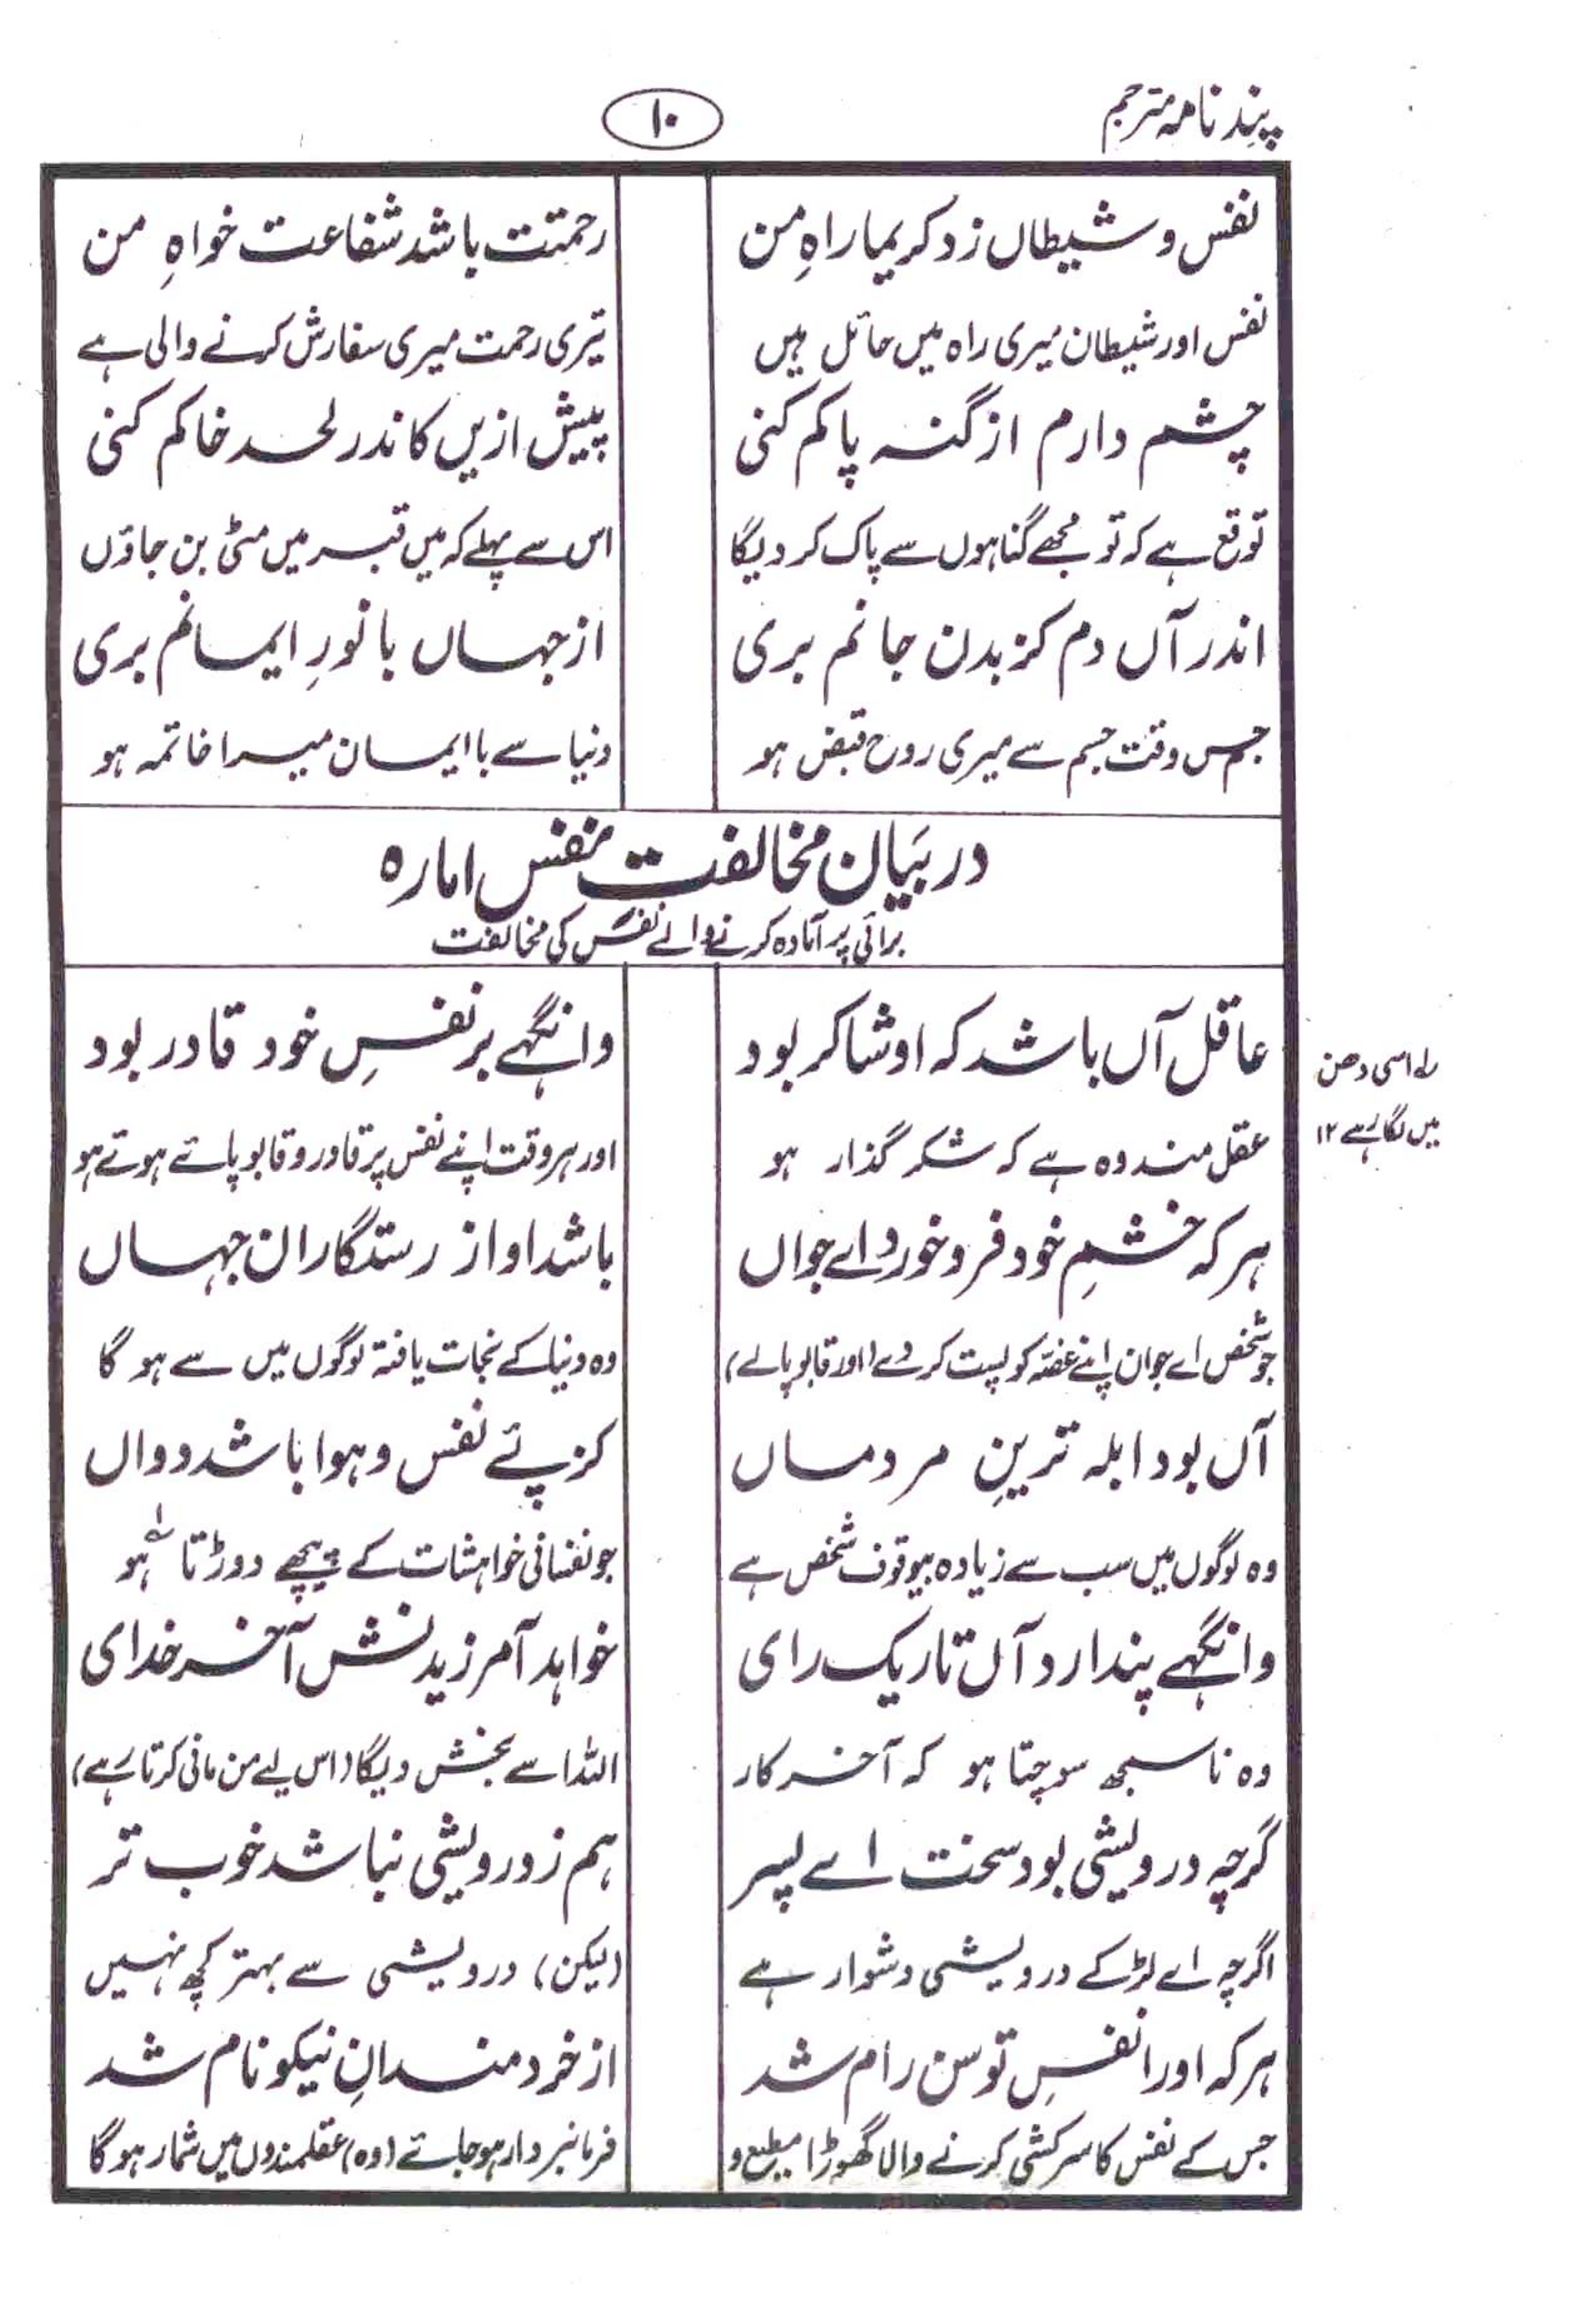 پند نامہ مترجم
۱۰
نفس و شیطاں زد کریما راہِ من	رحمتت باشد شفاعت خواہِ من
نفس اور شیطان میری راہ میں حائل ہیں	تیری رحمت میری سفارش کرنے والی ہے
چشم دارم از گنہ پاکم کنی	پیش ازیں کاندر لحد خاکم کنی
توقع ہے کہ تو مجھے گناہوں سے پاک کر دیگا	اس سے پہلے کہ میں قبر میں مٹی بن جاؤں
اندر آں دم کز بدن جانم بری	از جہاں با نورِ ایمانم بری
جس وقت جسم سے میری روح قبض ہو	دنیا سے با ایمان میرا خاتمہ ہو
در بیان مخالفت نفس امارہ
برائی پر آمادہ کرنے والے نفس کی مخالفت
عاقل آں باشد کہ او شاکر بود	وانگہے بر نفسِ خود قادر بود
عقل مند وہ ہے کہ شکر گذار ہو	اور ہر وقت اپنے نفس پر قادر و قابو پائے ہوتے ہو
ہر کہ خشمِ خود فرو خورد اے جواں	باشد او از رستگاران جہاں
جو شخص اے جوان اپنے غصّہ کو پست کر دے (اور قابو پالے)	وہ دنیا کے نجات یافتہ لوگوں میں سے ہو گا
آں بود ابلہ ترینِ مردماں	کز پئے نفس و ہوا باشد دواں
وہ لوگوں میں سب سے زیادہ بیوقوف شخص ہے	جو نفسانی خواہشات کے پیچھے دوڑتا ہو ؎۱
وانگہے پندارد آں تاریک رای	خواہد آمرزیدنش آخر خدای
وہ ناسمجھ سوچتا ہو کہ آخر کار	اللہ اسے بخش دیگا (اس لیے من مانی کرتا رہے)
گرچہ درویشی بود سخت اے پسر	ہم ز درویشی نباشد خوب تر
اگرچہ اے لڑکے درویشی دشوار ہے	(لیکن) درویشی سے بہتر کچھ نہیں
ہر کہ او را نفسِ توسن رام شد	از خرد مندانِ نیکو نام شد
جس کے نفس کا سرکشی کرنے والا گھوڑا مطیع و	فرمانبردار ہو جاتے (وہ) عقلمندوں میں شمار ہو گا
؎۱ اسی دھن
میں لگا رہے ۱۲